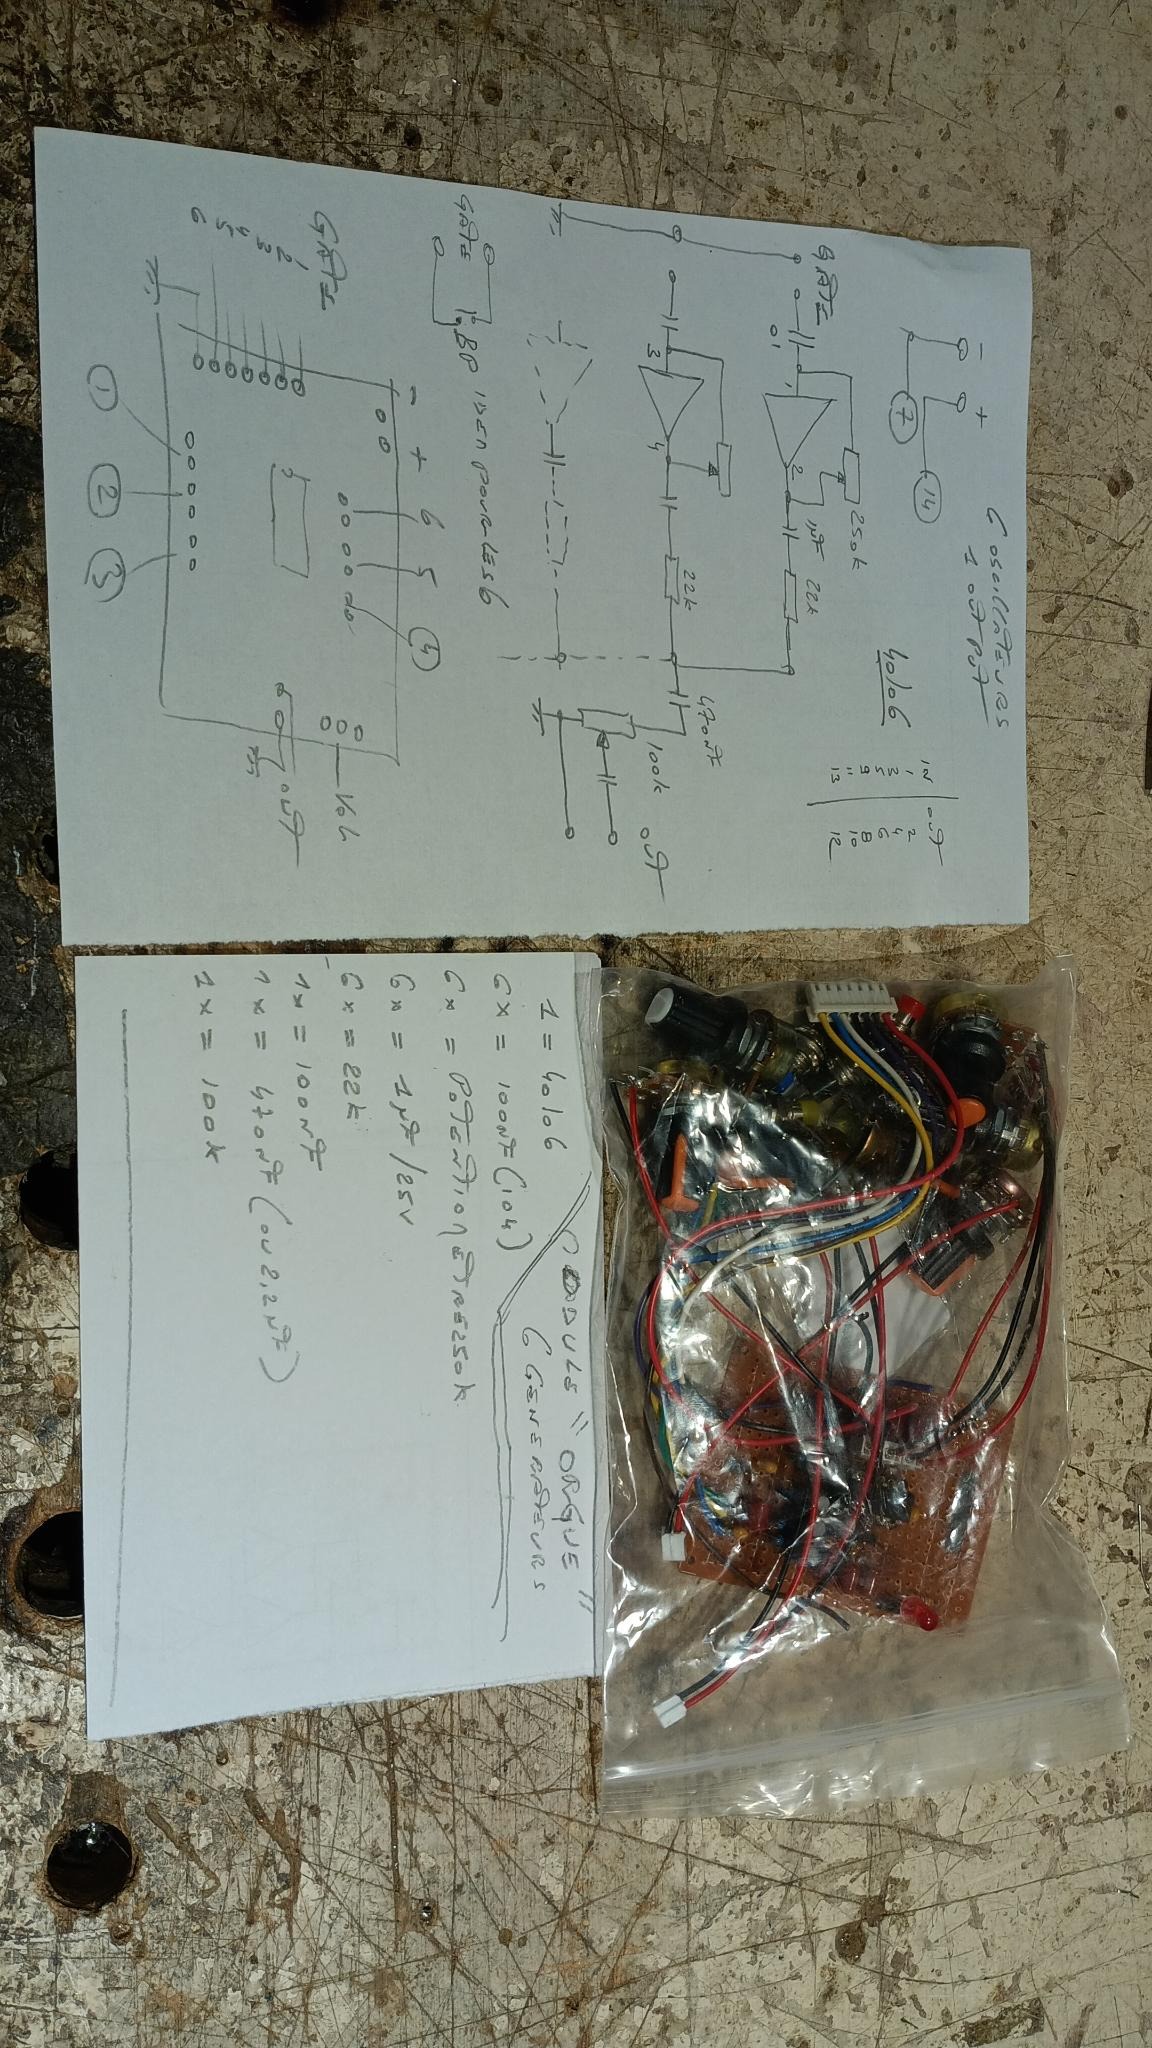 6 OSCILLATEURS
1 OUT PUT
- +
14
7
40106
IN OUT
1 2
3 4
5 6
9 8
11 10
13 12
250k
GATE
01
1
2
1µF
22k
3
4
22k
470nF
100k
OUT
GATE
BP IDEM POUR LES 6
- + 6 5 4
GATE
1
2
3
4
5
6
VOL
OUT
1 2 3
MODULE "ORGUE"
6 GENERATEURS
1 = 40106
6x = 100nF (104)
6x = POTENTIOMETRE 250k
6x = 1µF/25V
6x = 22k
1x = 100nF
1x = 470nF (OU 2,2µF)
1x = 100k